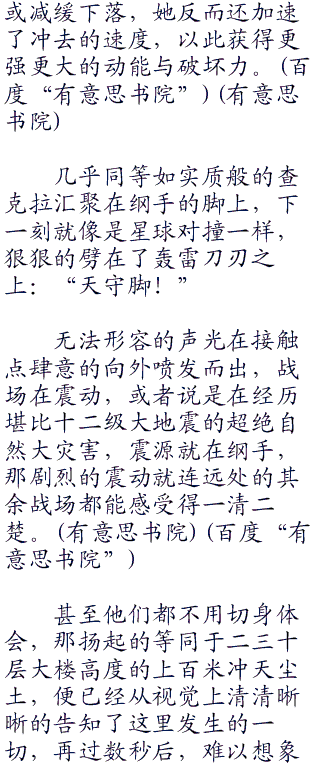 或减缓下落，她反而还加速
了冲去的速度，以此获得更
强更大的动能与破坏力。(百
度“有意思书院”)(有意思
书院)
几乎同等如实质般的查
克拉汇聚在纲手的脚上，下
一刻就像是星球对撞一样，
狠狠的劈在了轰雷刀刃之
上：“天守脚！”
无法形容的声光在接触
点肆意的向外喷发而出，战
场在震动，或者说是在经历
堪比十二级大地震的超绝自
然大灾害，震源就在纲手，
那剧烈的震动就连远处的其
余战场都能感受得一清二
楚。(有意思书院)(百度“有
意思书院”)
甚至他们都不用切身体
会，那扬起的等同于二三十
层大楼高度的上百米冲天尘
土，便已经从视觉上清清晰
晰的告知了这里发生的一
切，再过数秒后，难以想象